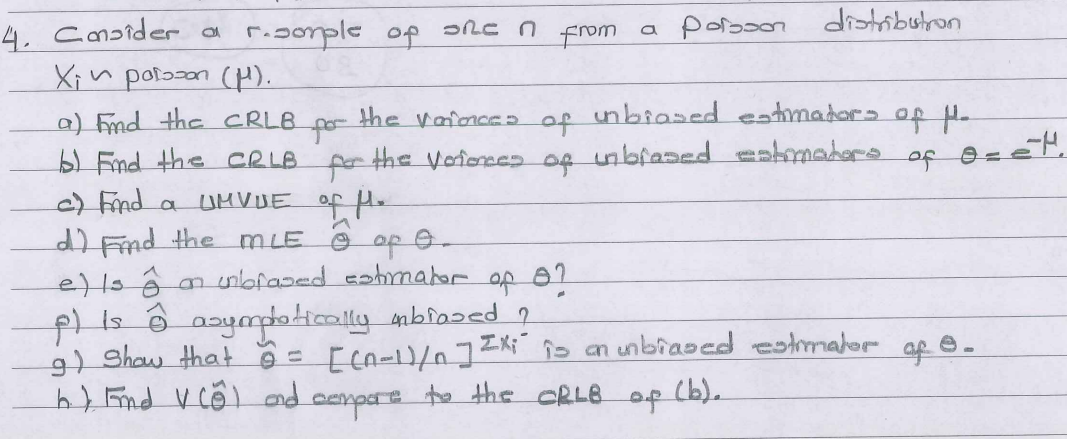 4. Consider a r.sample of size n from a Poisson distribution
Xi ~ poisson (μ).
a) Find the CRLB for the variances of unbiased estimators of μ.
b) Find the CRLB for the variances of unbiased estimators of θ = e^-μ.
c) Find a UMVUE of μ.
d) Find the MLE θ̂ of θ.
e) Is θ̂ an unbiased estimator of θ?
f) Is θ̂ asymptotically unbiased?
g) Show that θ̃ = [(n-1)/n]^ΣXi is an unbiased estimator of θ.
h) Find V(θ̃) and compare to the CRLB of (b).